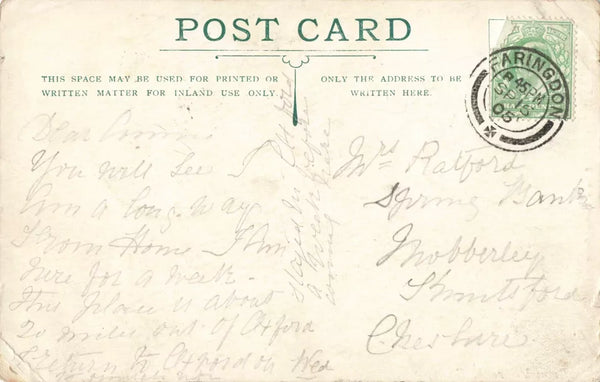 POST CARD
THIS SPACE MAY BE USED FOR PRINTED OR
WRITTEN MATTER FOR INLAND USE ONLY.
ONLY THE ADDRESS TO BE
WRITTEN HERE.
FARINGDON
45 PM
SP
05
Dear
You will See I
Am a long way
From Home I Am
here for a week
this place is about
20 miles out of Oxford
I return to Oxford on Wed
Stayed in Oxford
a week before
coming here
Mrs Ratford
Spring Bank
Mobberley
Knutsford
Cheshire